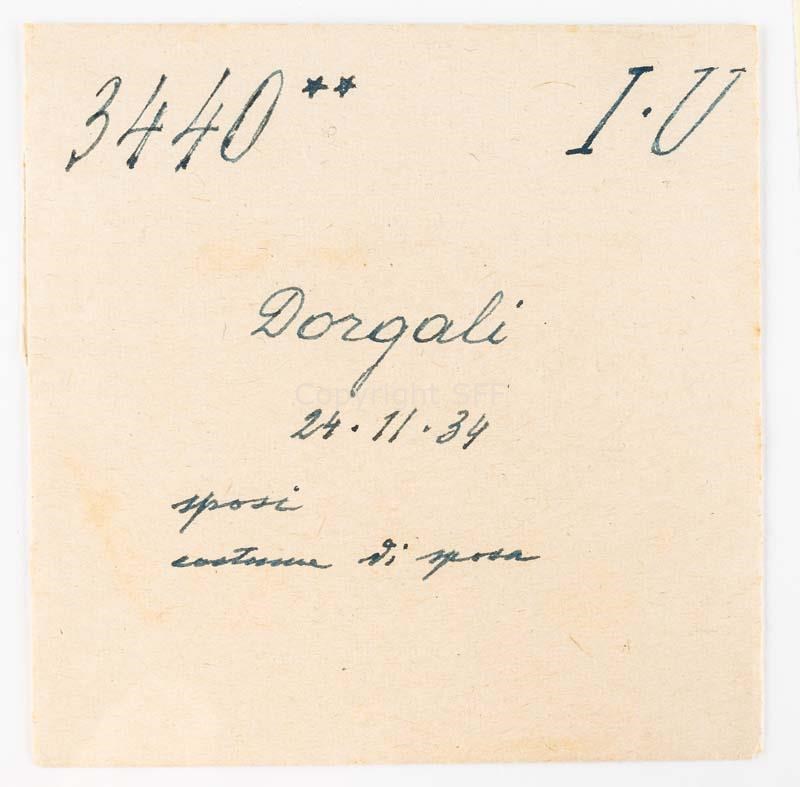 3440** I·U
Dorgali
Copyright SFF
24·11·34
sposi
costume di sposa